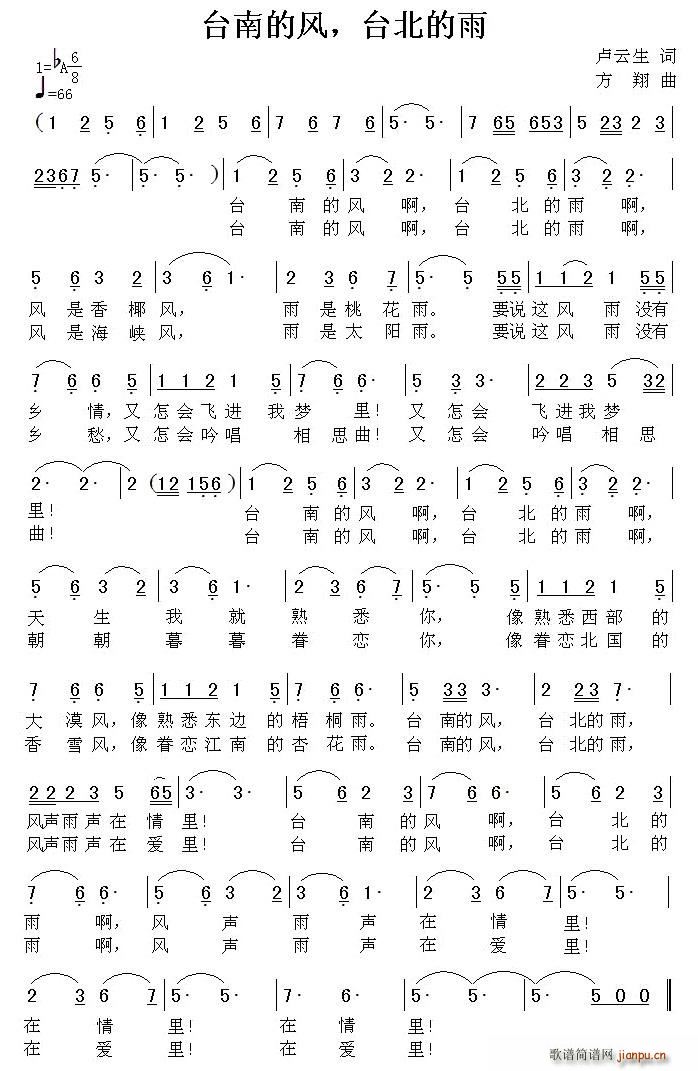 台南的风，台北的雨
1=♭A 6/8
卢云生 词
♩=66
方 翔 曲
(1 2 5 6 | 1 2 5 6 | 7 6 7 6 | 5· 5· | 7 65 653 | 5 23 2 3 |
2367 5· | 5· 5· ) | 1 2 5 6 | 3 2 2· | 1 2 5 6 | 3 2 2· |
台 南 的 风 啊， 台 北 的 雨 啊，
台 南 的 风 啊， 台 北 的 雨 啊，
5 6 3 2 | 3 6 1· | 2 3 6 7 | 5· 5 55 | 1 1 2 1 55 |
风 是 香 椰 风， 雨 是 桃 花 雨。 要说 这 风 雨 没有
风 是 海 峡 风， 雨 是 太 阳 雨。 要说 这 风 雨 没有
7 6 6 5 | 1 1 2 1 5 | 3 7 6· | 5 3 3· | 2 2 3 5 32 |
乡 情，又 怎会飞进 我 梦 里！ 又 怎会 飞进我梦
乡 愁，又 怎会吟唱 相 思曲！ 又 怎会 吟唱 相思
2· 2· | 2 (12 156) | 1 2 5 6 | 3 2 2· | 1 2 5 6 | 3 2 2· |
里！ 台 南 的 风 啊， 台 北 的 雨 啊，
曲！ 台 南 的 风 啊， 台 北 的 雨 啊，
5 6 3 2 | 3 6 1· | 2 3 6 7 | 5· 5 5 | 1 1 2 1 5 |
天 生 我 就 熟 悉 你， 像 熟悉西部 的
朝 朝 暮 暮 眷 恋 你， 像 眷恋北国 的
7 6 6 5 | 1 1 2 1 5 | 3 7 6· | 5 33 3· | 2 23 7· |
大 漠风，像 熟悉东边 的 梧 桐雨。 台 南的 风， 台 北的 雨，
香 雪风，像 眷恋江南 的 杏 花雨。 台 南的 风， 台 北的 雨，
2 2 2 3 5 65 | 3· 3· | 5 6 2 3 | 7 6 6· | 5 6 2 3 |
风声雨声在 情 里！ 台 南 的 风 啊， 台 北 的
风声雨声在 爱 里！ 台 南 的 风 啊， 台 北 的
7 6 6· | 5 6 3 2 | 3 6 1· | 2 3 6 7 | 5· 5· |
雨 啊， 风 声 雨 声 在 情 里！
雨 啊， 风 声 雨 声 在 爱 里！
2 3 6 7 | 5· 5· | 2 3 6 7 | 5· 5· | 5 0 0 ‖
在 情 里！ 在 情 里！
在 爱 里！ 在 爱 里！
歌谱简谱网 jianpu.cn